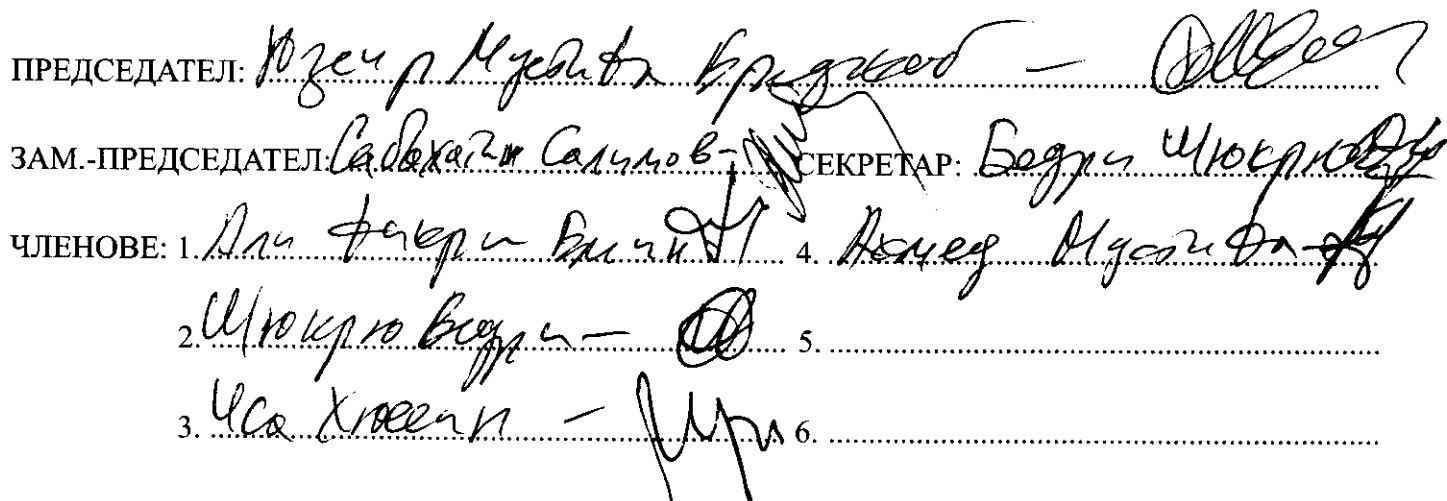 ПРЕДСЕДАТЕЛ: Юзеир Мустафа
ЗАМ.-ПРЕДСЕДАТЕЛ: Сабахатин Салимов - СЕКРЕТАР: Бедри Шюкрю
ЧЛЕНОВЕ: 1. Али Фикри Емин 4. Ахмед Мустафа -
2. Шюкрю Бедри - 5.
3. Иса Хюсеин - 6.